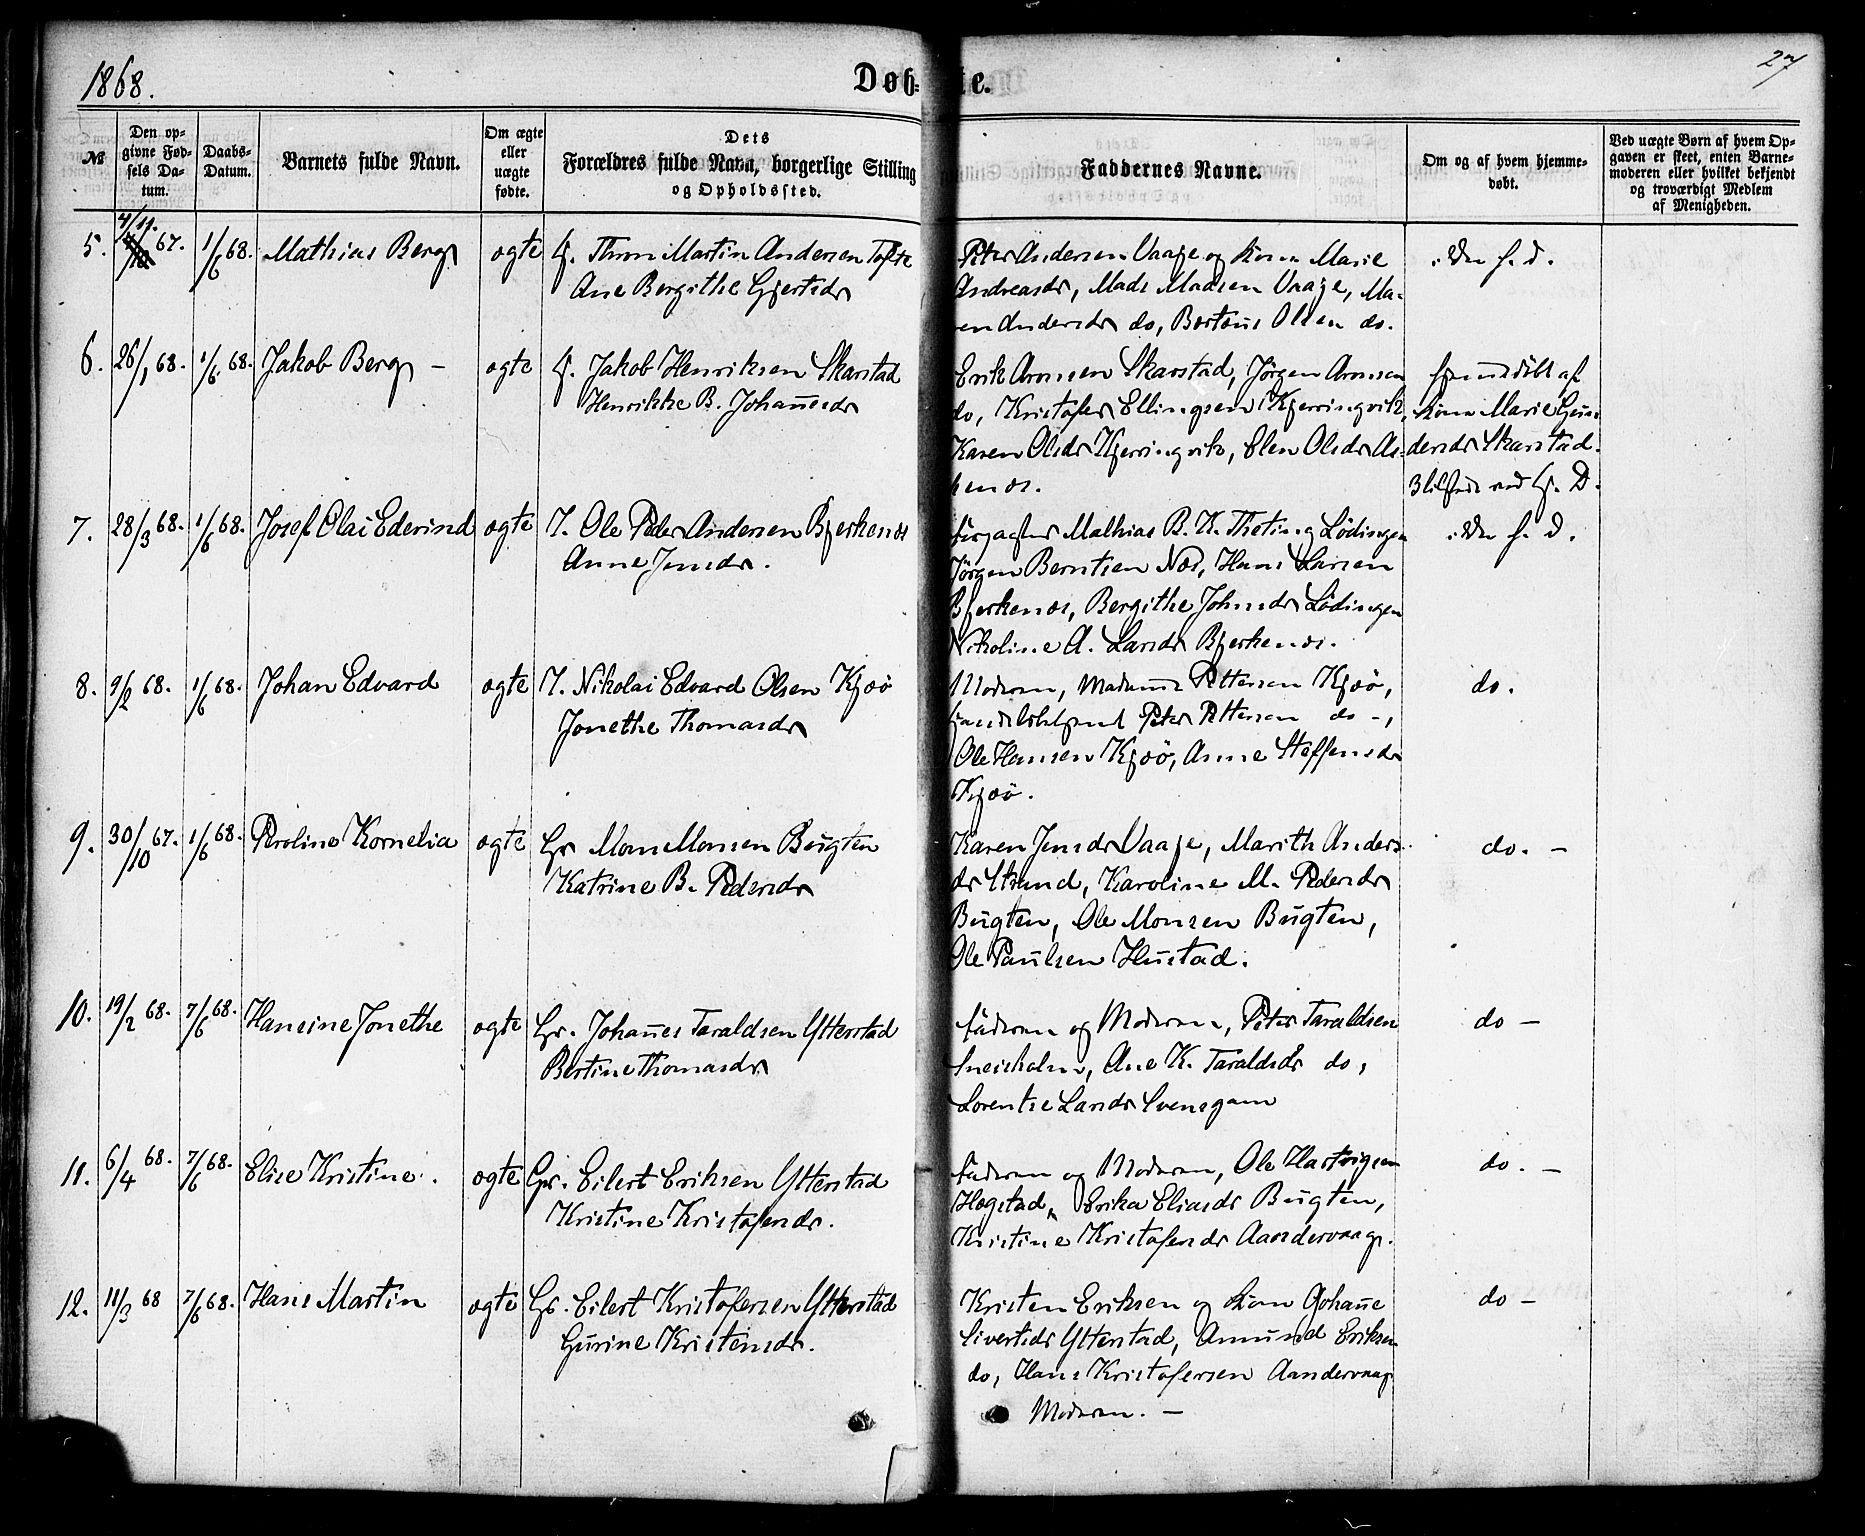 1868.
Døb-
te.
27
№
Den op-
givne Fød-
sels Da-
tum.
Daabs-
Datum.
Barnets fulde Navn.
Om ægte
eller
uægte
fødte.
Dets
Forældres fulde Navn, borgerlige Stilling
og Opholdssted.
Faddernes Navne.
Om og af hvem hjemme-
døbt.
Ved uægte Børn af hvem Op-
gaven er skeet, enten Barne-
moderen eller hvilket bekjendt
og troværdigt Medlem
af Menigheden.
5. 67. 1/6 68. Mathias Berg ægte Martin Andersen Tofte
Ane Bergithe Gjertsdr
Peter Andersen Vaage og Kone Marie
Andreasdr, Mads Madsen Vaage, Ma-
ren Andersdr do, Berteus Olsen do.
6. 26/1 68. 1/6 68. Jakob Berg – ægte Jakob Henriksen Skarstad
Henrikke B. Johannesdr
Erik Aronsen Skarstad, Jørgen Aronsen
do, Kristofer Ellingsen Kjerringvik,
Karen Olsdr Kjerringvik, Elen Olsdr As-
kenæs.
hjemmedøbt af
Kone Marie Gun-
dersdr Skarstad.
3 tilstede ved Hj. D.
7. 28/3 68. 1/6 68. Josef Olai Ederind ægte I. Ole Peder Andersen Bjerkenæs
Anne Jensdr.
Mathias B. K. Theting Lødingen
Jørgen Berntsen Næs, Hans Larsen
Bjerkenæs, Bergithe Johnsdr Lødingen
Nikoline A. Larsdr Bjerkenæs.
8. 9/2 68. 1/6 68. Johan Edvard ægte I. Nikolai Edvard Olsen Kjøø
Jonethe Thomasdr
Moderen, Madame Pettersen Kjøø,
Peter Pettersen do -,
Ole Hansen Kjøø, Anne Steffensdr
Kjøø.
do.
9. 30/10 67. 1/6 68. Peroline Kornelia ægte Gr Mons Monsen Bugten
Katrine B. Pedersdr
Karen Jensdr Vaage, Marith Anders-
dr Strand, Karoline M. Pedersdr
Bugten, Ole Monsen Bugten,
Ole Paulsen Hustad.
do. –
10. 19/2 68. 7/6 68. Hansine Jonethe ægte Gr. Johannes Taraldsen Ytterstad
Bertine Thomasdr
Faderen og Moderen, Peter Taraldsen
Sneisholm, Ane K. Taraldsdr do,
Lorentse Larsdr Svensgam
do –
11. 6/4 68. 7/6 68. Elise Kristine. ægte Gr. Eilert Eriksen Ytterstad
Kristine Kristofersdr.
Faderen og Moderen, Ole Hartvigsen
Hægstad, Erika Eliasdr Bugten,
Kristine Kristofersdr Aandervaag.
do. –
12. 11/3 68 7/6 68. Hans Martin ægte Gr. Eilert Kristofersen Ytterstad
Gurine Kristensdr.
Kristen Eriksen og Kone Johanne
Sivertsdr Ytterstad, Amund Eriksen
do, Hans Kristofersen Aandervaag
Moderen. –
do –